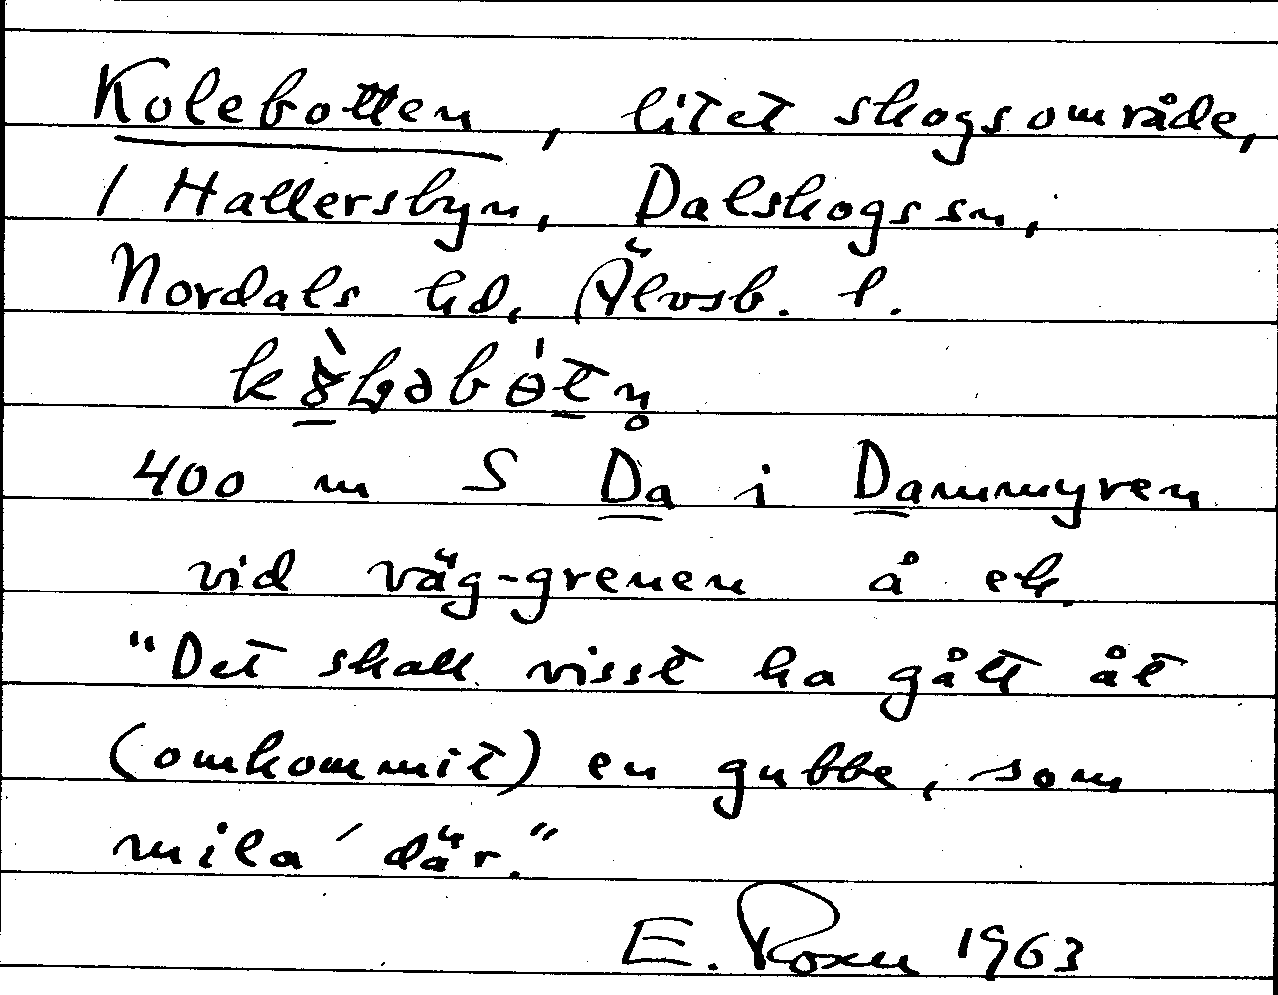 Kolebotten, litet skogsområde,
i Hallersbyn, Dalskogs sn,
Nordals hd, Älvsb. l.
400 m S Da i Dammyren
vid väg-grenen å ek.
"Det skall visst ha gått åt
(omkommit) en gubbe, som
mila' där."
E. Roxen 1963